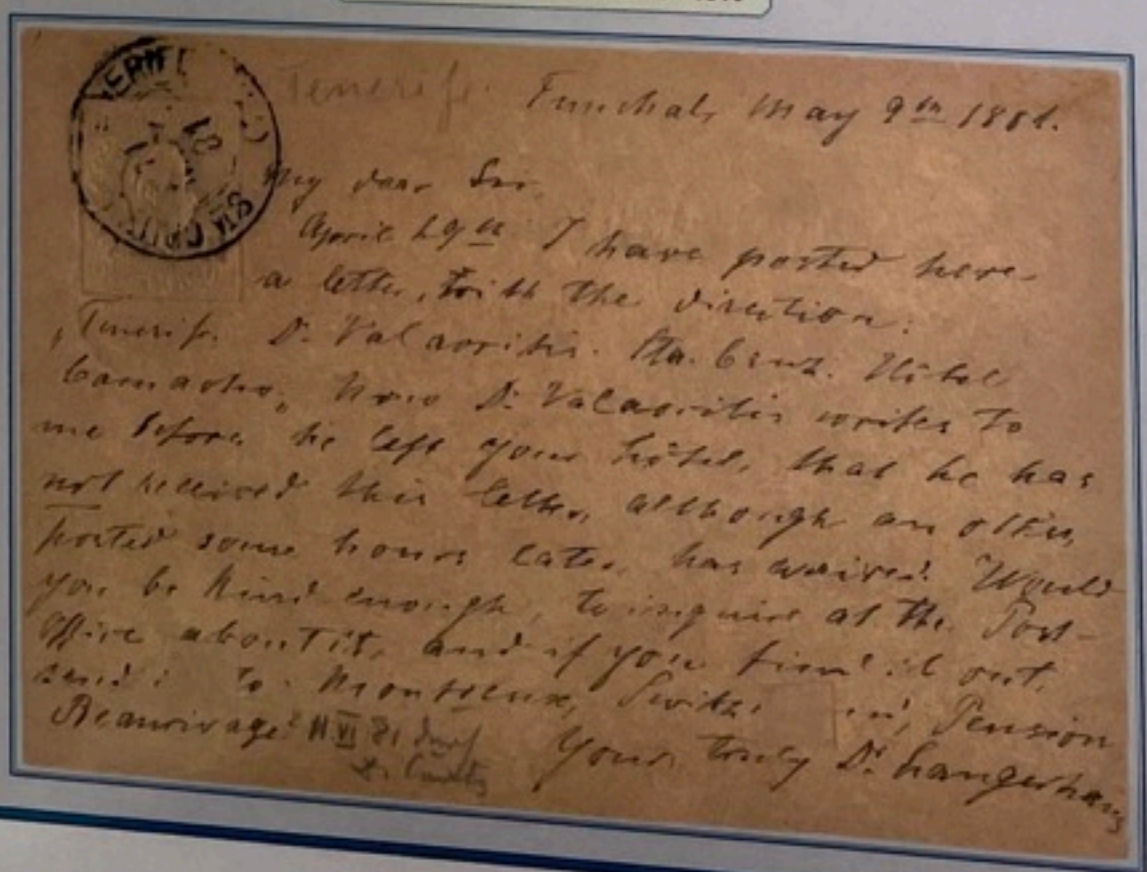 Tenerife. Funchal, May 9th 1881.
My dear Sir.
April 29th I have posted here
a letter, with the direction:
„Tenerife. Dr Valaoritis. Sta. Cruz. Hôtel
Camacho„ Now Dr Valaoritis writes to
me before he left your hôtel, that he has
not received this letter, although an other,
posted some hours later, has arrived. Would
you be kind enough, to inquire at the Post-
Office about it, and if you find it out,
send to Montreux, Pension
Beaurivage? 11 VI 81
Yours truly Dr Langerhans
TENERIF
STA CRUZ
81